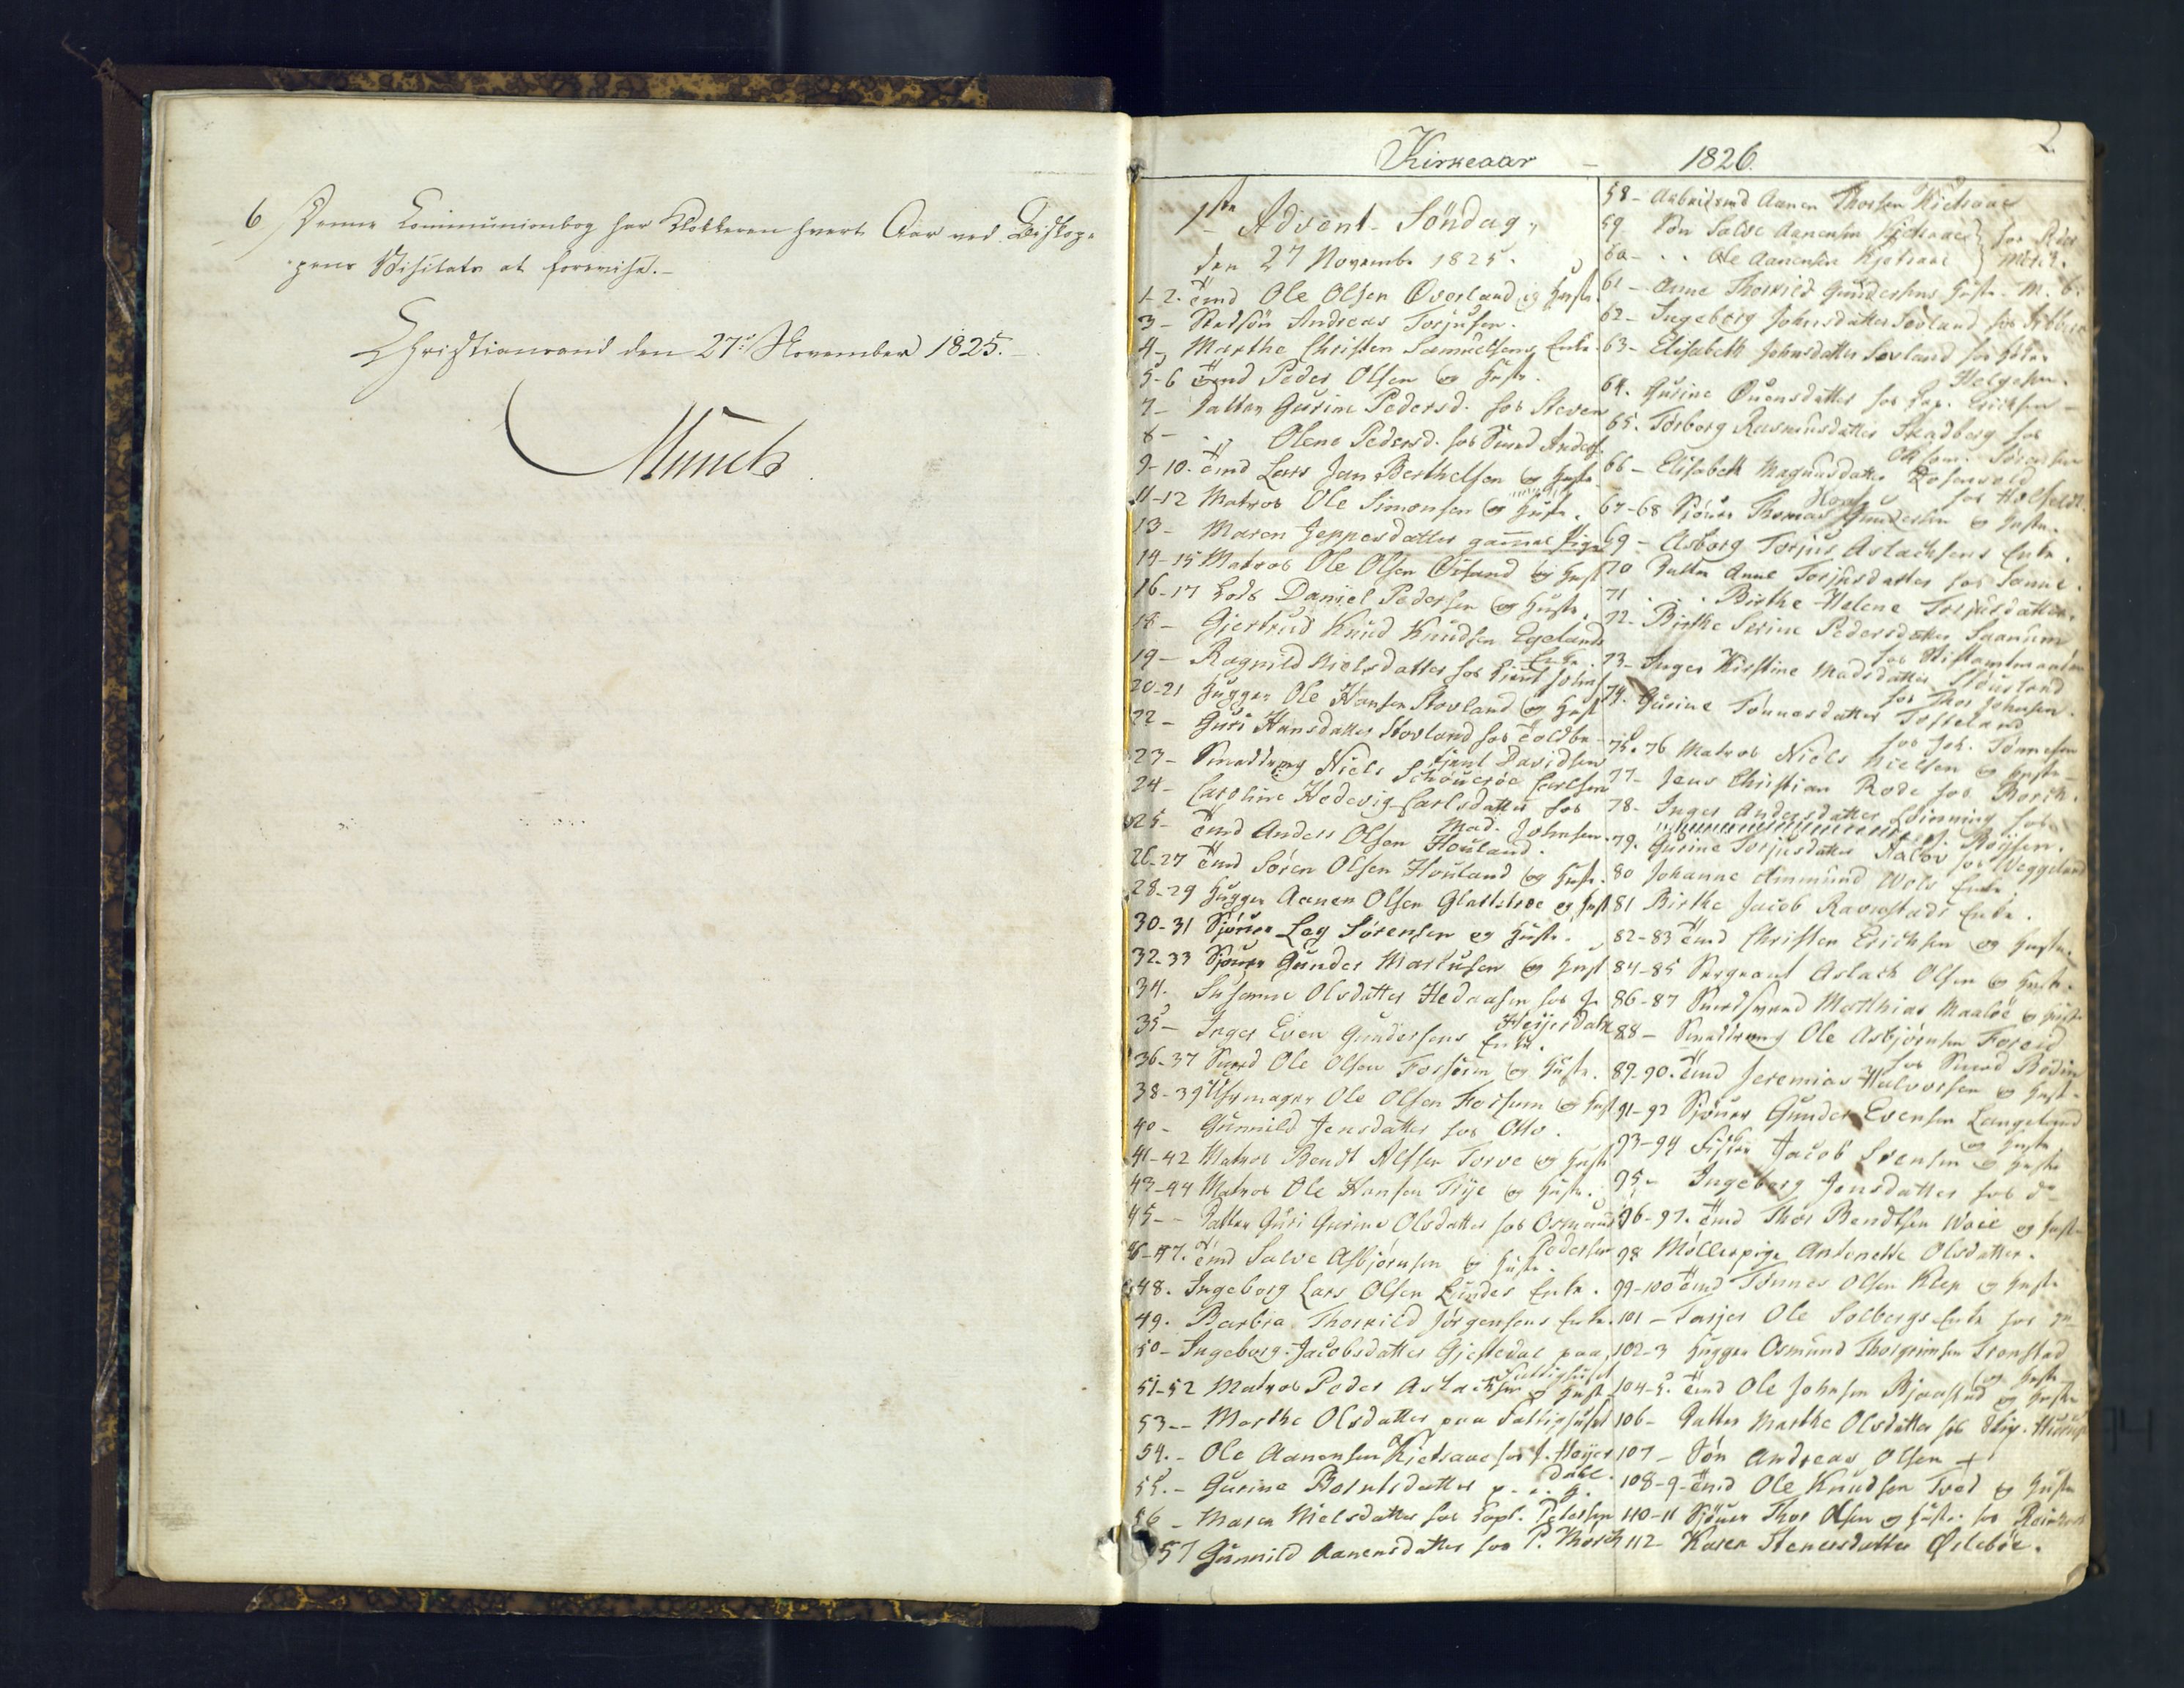 6 Denne Communionbog har Klokkeren hvert Aar ved Biskop-
pens Visitats at forevise.-
Christiansand den 27de November 1825.-
Munch
2
Kirkeaar - 1826.
1ste Advent-Söndag,
den 27 Novembr 1825.
1-2. Tmd Ole Olsen Överland og Hustr.
3- Stedsön Andreas Torjusen.
4- Marthe Christen Samuelsens Enke.
5-6 Tmd Peder Olsen og Hustr.
7- Datter Gurine Pedersd. hos Steven
8- .,, Olene Pedersd. hos Smed Anders.
9-10. Tmd Lars Jan Berthelsen og Hustr.
11-12 Matros Ole Simonsen og Hustr.
13- Maren Jeppesdatter gammel Pige
14-15 Matros Ole Olsen Ösund og Hust
16-17 Lods Daniel Pedersen og Hustr.
18- Gjertrud Knud Knudsen Egelands
Enke.
19- Ragnild Nielsdatter hos
20-21 Hugger Ole Hansen Stovland og Hust
22- Guri Hansdatter Stovland hos Toldbe-
tjent Davidsen
23- Smeddreng Niels Carlsen
24- Caroline Hedevig Carlsdatter hos
Mad. Johnsen.
25- Tmd Anders Olsen Houland.
26-27 Tmd Sören Olsen Houland og Hustr.
28-29 Hugger Aanen Olsen og Hust
30-31 Sjöuer Leg Sörensen og Hustr.
32-33 Sjöuer Gunder Markusen og Hust
34. Susanne Olsdatter Hedaasen hos J.
Heyerdahl
35- Inger Even Gundersens Enke.
36-37 Smed Ole Olsen Forsum og Hustr.
38-39 Uhrmager Ole Olsen Forsum og Hust
40- Gunnild Jensdatter hos Otto.
41-42 Matros Bendt Alfsen Torve og Hustr
43-44 Matros Ole Hansen Trye og Hustr.
45-- Datter Guri Gurine Olsdatter hos Osmund
Pedersen
46-47. Tmd Salve Asbjörnsen og Hustr.
48. Ingeborg Lars Olsen Lundes Enke.
49. Barbra Thorkild Jörgensens Enke.
50- Ingeborg Jacobsdatter Gjestedal paa
Fattighuset
51-52 Matros Peder Aslaksen og Hust
53-- Marthe Olsdatter paa Fattighuset
54.- Ole Aanensen Kietsaae hos J. Heyer
dahl.
55.- Gurine Berntsdatter
56- Maren Nielsdatter hos Capt. Petersen
57 Gunnild Aanensdatter hos P. Mörch
58- Arbeidsmd Aanen Thorsen Kietsaae
59- Sön Salve Aanensen Kjetsaae hos Peder
60- . . Ole Aanensen Kjetsaae Mörch.
61- Anne Thorkild Gundersens Hustr.
62- Ingeborg Johnsdatter Sovland hos
63- Elisabeth Johnsdatter Sovland hos
Helgesen.
64. Gurine Ouensdatter hos Cap. Erichsen-
65. Torborg Rasmusdatter Skadberg hos
Sörensen
66- Elisabeth Magnusdatter Rosenvold
hos Holfeldt.
67-68 Sjöuer Thomas Gundersen og Hustr.
69- Asborg Torjus Aslachsens Enke.
70 Datter Anne Torjusdatter hos samme.
71 . . . Birthe Helene Torjusdatter.
72- Birthe Serine Pedersdatter Saanum
hos Stiftamtmanden
73- Inger Kirstine Madsdatter
hos Thor Johnsen.
74. Gurine Tönnesdatter Tofteland
hos Joh. Tönnesen
75-76 Matros Niels Nielsen og Hustr-
77- Jens Christian Rode hos Borch.
78- Inger Andersdatter hos
Boysen.
79. Gurine Torjusdatter hos Weggeland
80 Johanne Ammund Wols Enke
81 Birthe Jacob Ravnstads Enke.
82-83 Tmd Christen Erichsen og Hustr.
84-85 Sergeant Aslach Olsen og Hustr.
86-87 Smedsvend Mathias Maalöe og Hustr
88- Smeddreng Ole Asbjörnsen Foreid
hos Smed Bodin
89-90. Tmd Jeremias Halvorsen og Hust-
91-92 Sjöuer Gunder Evensen Langeland
og Hustr.
93-94 Fisker Jacob Svensen og Hustr
95- Ingeborg Jensdatter hos do
96-97. Tmd Thor Bendtsen Woie og Hust-
98 Möllerpige Antonette Olsdatter.
99-100 Tmd Tönnes Olsen Klep og Hustr
101- Tarjer Ole Solbergs Enke
102-3 Hugger Osmund Thorgrimsen Tronstad
og Hustr-
104-5. Tmd Ole Johnsen Bjaastad og Hustr
106- Datter Marthe Olsdatter hos
107- Sön Andreas Olsen +
108-9 Tmd Ole Knudsen Tved og Hustr
110-11 Sjöuer Thor Olsen og Hustr. hos
112- Karen Stenersdatter Öslebö.